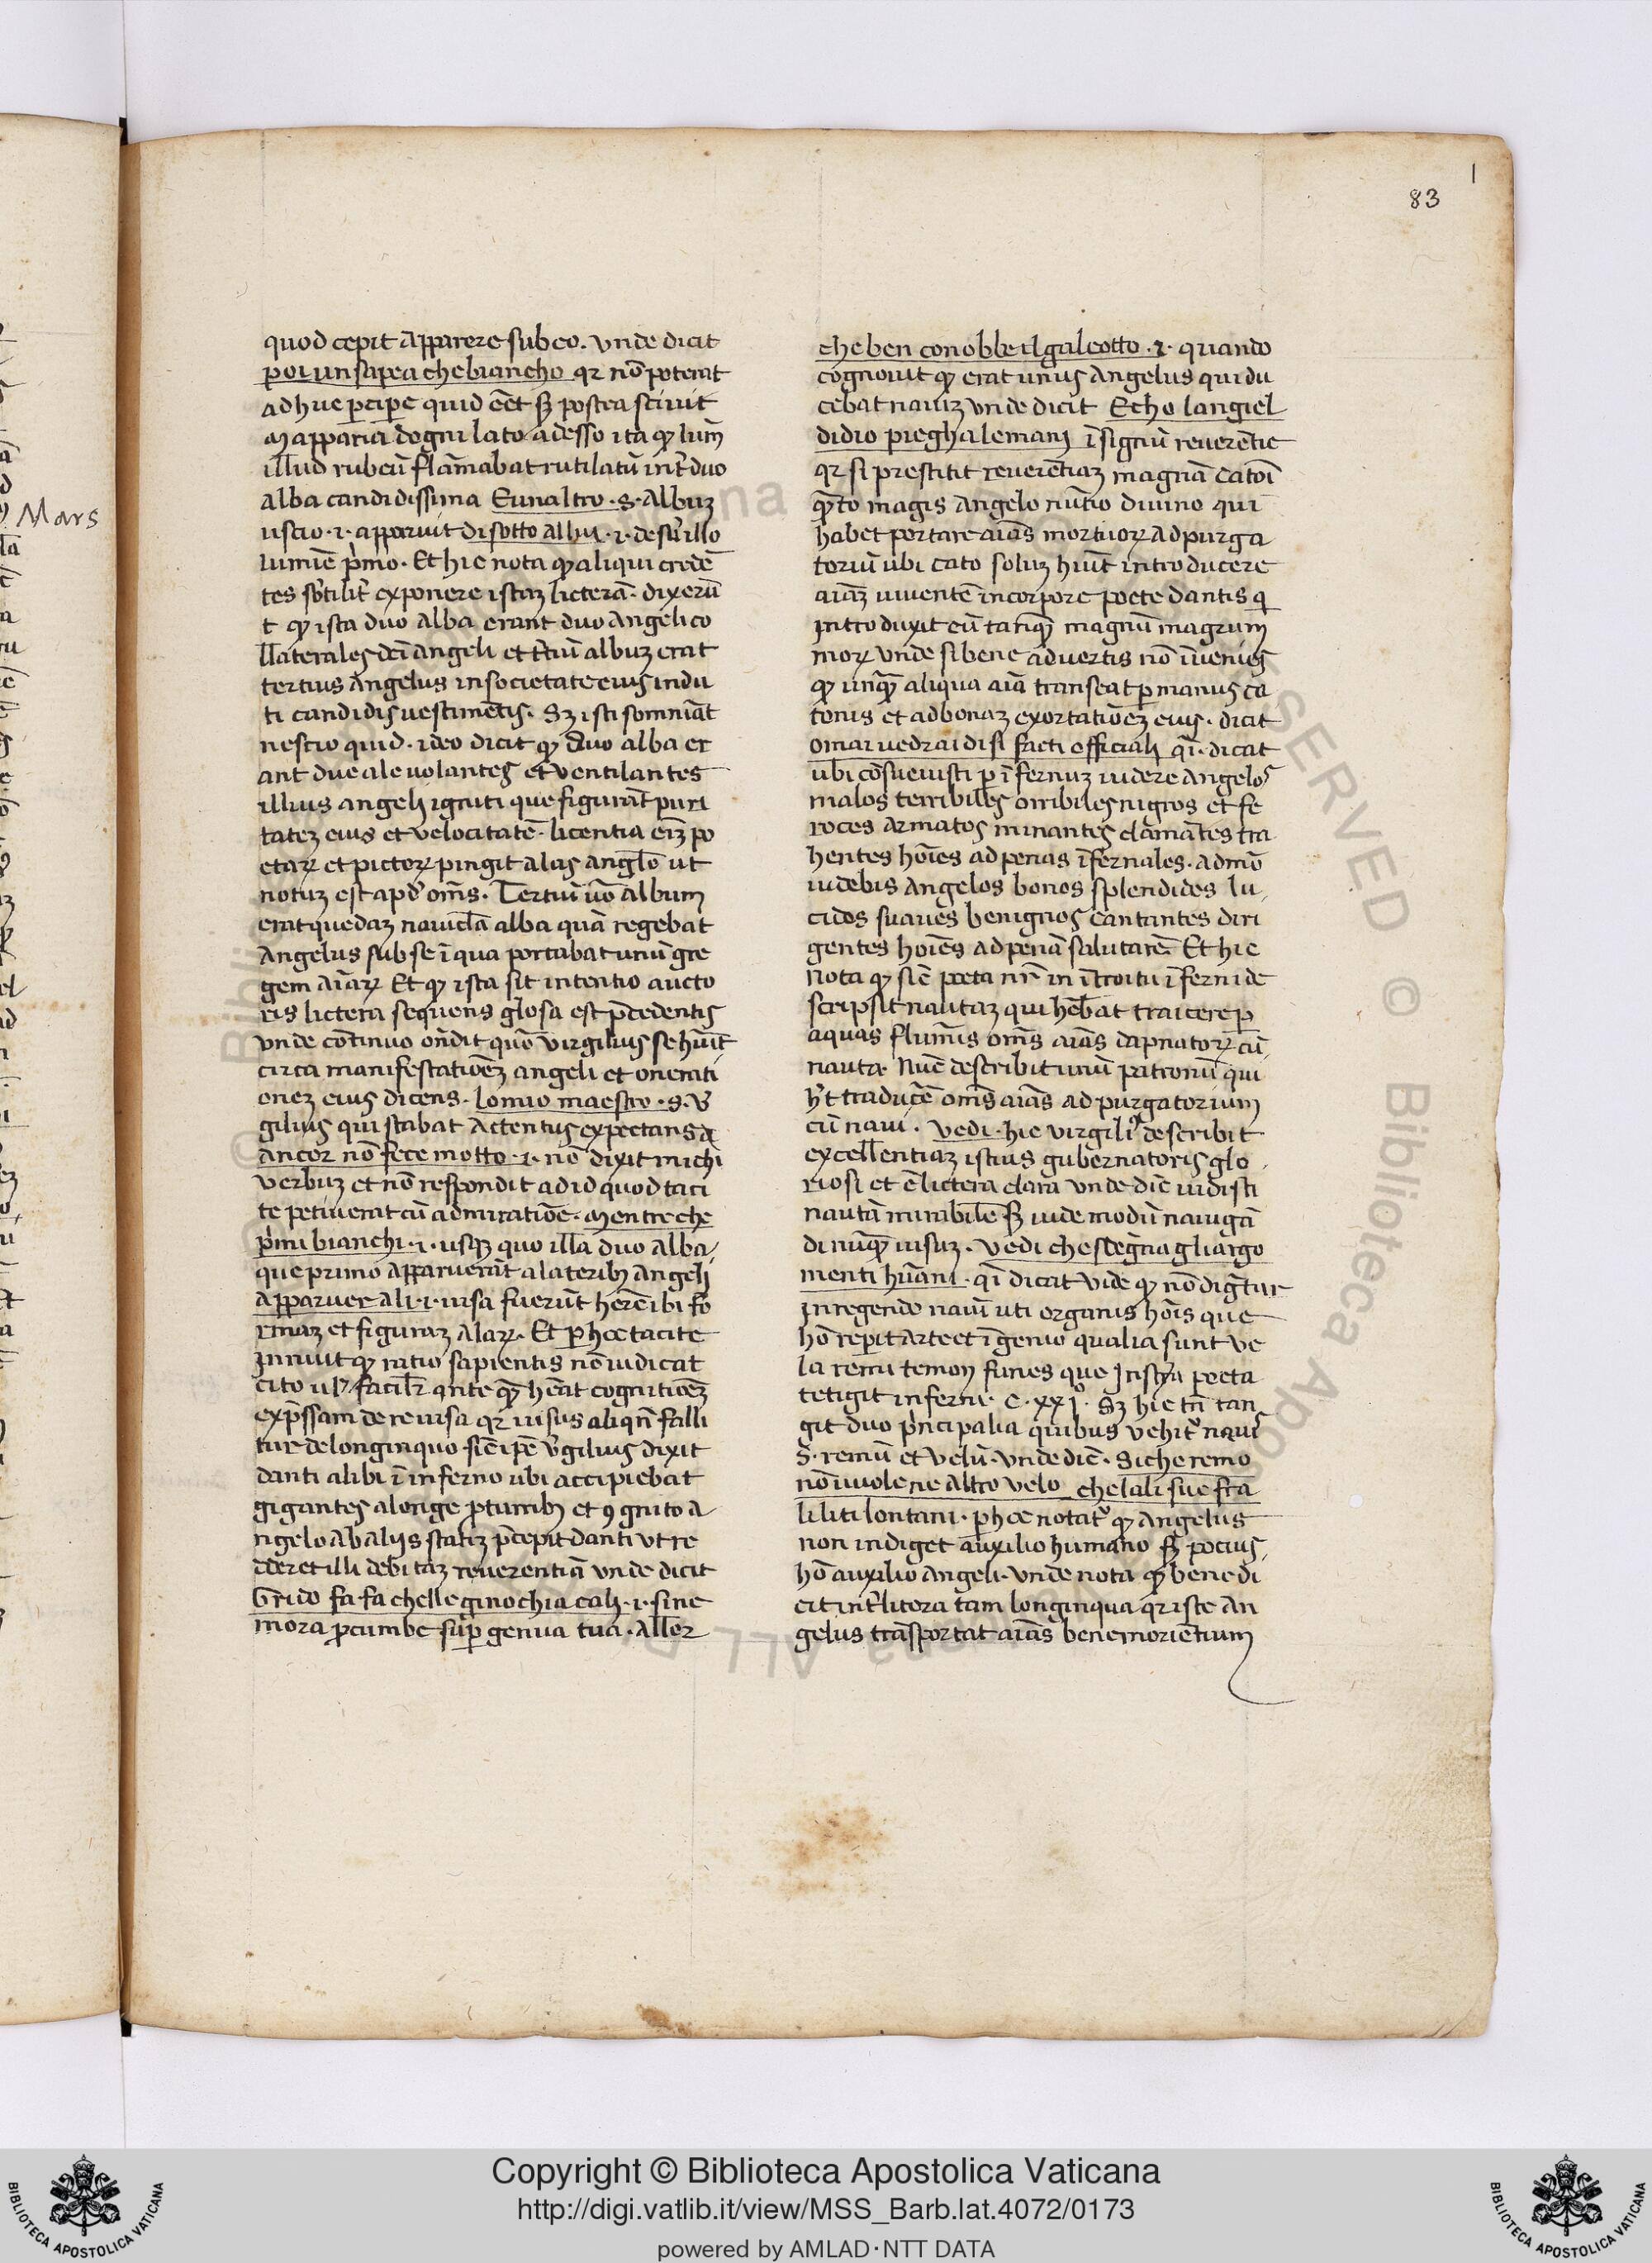 83
1
Mars
quod cepit apparere sub eo. vnde dicit
poi un sapea che biancho qr nõ poterat
adhuc pcipe quid eẽt sȝ postea sciuit
Mapparia dogni lato adesso ita qȝ lum̃
illud rubeũ flãmabat rutilatũ int̃ duo
alba candidissima Eunaltro .s. albuȝ
uscio .i. apparuit di sotto allui .i. de sub illo
lumĩe p̃mo. Et hic nota qȝ aliqui credẽ
tes sb̃tilit̃ exponere istaȝ licterã. dixerũ
t qȝ ista duo alba erant duo angeli co
llaterales dcĩ angeli et t̃ciũ albuȝ erat
tertius angelus in societate eius indu
ti candidis uestimẽtis. Sȝ isti somniãt
nescio quid. ideo dicit qȝ duo alba er
ant due ale uolantes et ventilantes
illius angeli igniti que figurãt puri
tateȝ eius et velocitatẽ. licentia eĩȝ po
etaꝝ et pictoꝝ pingit alas anglo ut
notuȝ est apd̃ om̃s. Tertiũ uõ album
erat quedaȝ nauicl̃a alba quã regebat
Angelus sub se ĩ qua portabat unũ gre
gem aĩaꝝ Et qȝ ista sit intentio aucto
ris lictera sequens glosa est p̃cedentis
vnde cõtinuo oñdit quõ virgilius se hũit
circa manifestatiõeȝ angeli et onerati
oneȝ eius dicens. lo mio maestro .s. v̾
gilius qui stabat actentus expectans
ancor nõ fece motto .i. nõ dixit michi
verbuȝ et nõ respondit ad id quod taci
te petiuerat cũ admiratiõe. Mentre che
p̃mi bianchi .i. usqȝ quo illa duo alba
que primo apparuerãt a lateribȝ angeli
apparuer ali .i. uisa fuerũt her̃e ibi fo
rmaȝ et figuraȝ alaꝝ. Et p hoc tacite
Innuit qȝ ratio sapientis nõ iudicat
cito ul̾ facil̾r ante qȝ heat cognitiõeȝ
exp̃ssam de re uisa qr uisus aliqñ falli
tur de longinquo sic̃ ip̃e v̾gilius dixit
danti alibi ĩ inferno ubi accipiebat
gigantes a longe p turribȝ et ꝯgnito a
ngelo ab aliis statiȝ p̃cepit danti vt re
dderet illi debitaȝ reuerentiã vnde dicit
Grido fa fa che lle ginochia cali .i. sine
mora pcumbe sup genua tua. Allor
che ben conobbe il galeotto .i. quando
cognouit qȝ erat unus angelus qui du
cebat nauiȝ vnde dicit Echo langiel
didio piegha le mani ĩ signũ reuerẽtie
qr si prestitit reuerẽtiaȝ magnã Catoĩ
qȝto magis angelo nũtio diuino qui
habet portare aĩas mortuoꝝ ad purga
toriũ ubi Cato soluȝ hiũt introducere
aĩaȝ uiuentẽ in corpore poete dantis q
Introduxit eũ tanqȝ magnũ magnum
moꝝ vnde si bene aduertis nõ ĩuenies
qȝ unqȝ aliqua aĩa transeat p manus ca
tonis et ad bonaȝ exortatiõeȝ eius. dicit
omai uedrai di si facti officiali qĩ. dicat
ubi cõsueuisti p ĩfernuȝ uidere angelos
malos terribiles orribiles nigros et fe
roces armatos minantes clamãtes tra
hentes hoĩes ad penas ĩfernales. admõ
uidebis angelos bonos splendidos lu
cidos suaues benignos cantantes diri
gentes hoĩes ad penã salutarẽ Et hic
nota qȝ sic̃ poeta nr̃ in ĩtroitu ĩferni de
scripsit nautaȝ qui heb̃at traicere p
aquas flumĩs om̃s aĩas dapnatoꝝ cũ
nauta. Nũc describit unũ patronũ qui
h̾t traduc̃e om̃s aĩas ad purgatorium
cũ naui. Vedi. hic virgili9 describit
excellentiaȝ istius gubernatoris glo
riosi et ẽ lictera clara vnde dic̃ uidisti
nautã mirabilẽ sȝ uide modũ nauigã
di nuqȝ uisuȝ. Vedi che sdegna gli argo
menti hũani. qĩ dicat vide qȝ nõ dignt̃ur
In regendo nauĩ uti organis hoĩs que
hõ reperit arte et ĩgenio qualia sunt ve
la remi temon funes que poeta
tetigit inferni. C. xxjº. Sȝ hic tñ tan
git duo p̃ncipalia quibus vehit̃ nauis
s. remũ et velũ. vnde dic̃. Siche remo
nõ uuole ne altro velo chelali sue fra
li liti lontani. p hoc notat̃ qȝ angelus
non indiget auxilio humano sȝ pocius
hõ auxilio angeli. vnde nota qȝ bene di
cit int̃ litora tam longinqua qr iste an
gelus trãsportat aĩas bene moriẽtium
© Biblioteca Apostolica Vaticana ALL RIGHTS RESERVED © Biblioteca Apostolica Vaticana
Copyright © Biblioteca Apostolica Vaticana
http://digi.vatlib.it/view/MSS_Barb.lat.4072/0173
powered by AMLAD·NTT DATA
BIBLIOTECA APOSTOLICA VATICANA
BIBLIOTECA APOSTOLICA VATICANA